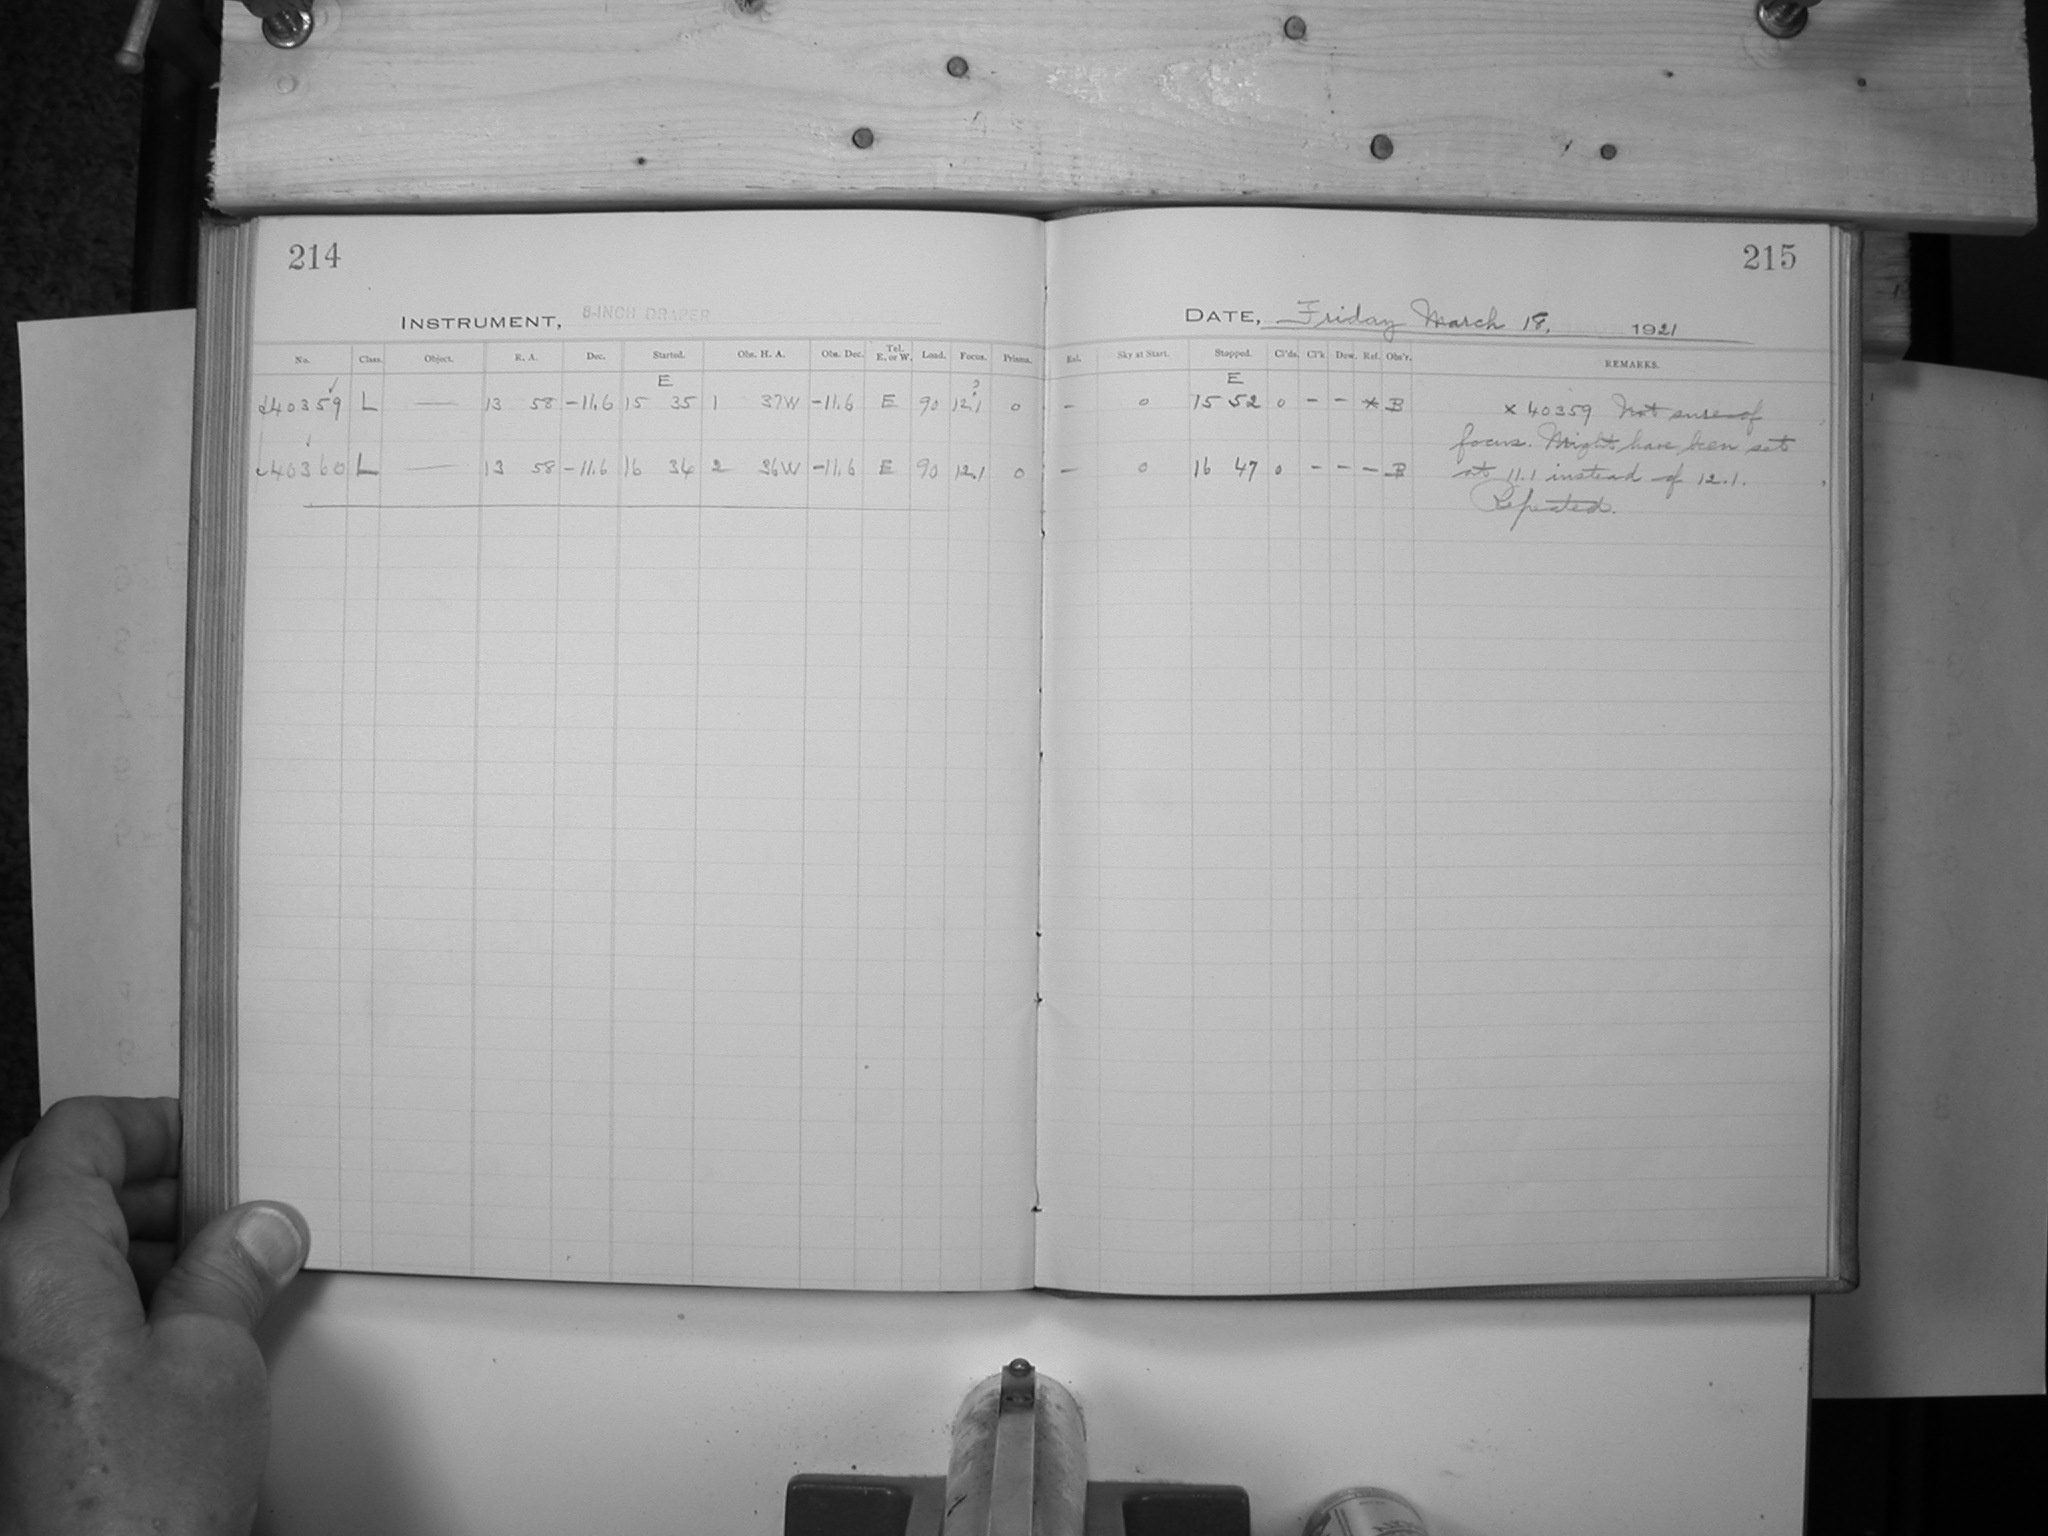 214
215
INSTRUMENT, 8-INCH DRAPER
DATE, Friday March 18, 1921
No. Class. Object. R. A. Dec. Started. Obs. H. A. Obs. Dec. Tel. E. or W. Load. Focus. Prisms. Sky at Start. Stopped. Cl'ds. Cl'k Dew. Ref. Obs'r. REMARKS.
E E
40359 L — 13 58 -11.6 15 35 1 37W -11.6 E 90 12.1 ? 0 - 0 15 52 0 - - * B
40360 L — 13 58 -11.6 16 34 2 36W -11.6 E 90 12.1 0 - 0 16 47 0 - - - B
x 40359 Not sure of
focus. Might have been set
at 11.1 instead of 12.1.
Repeated.